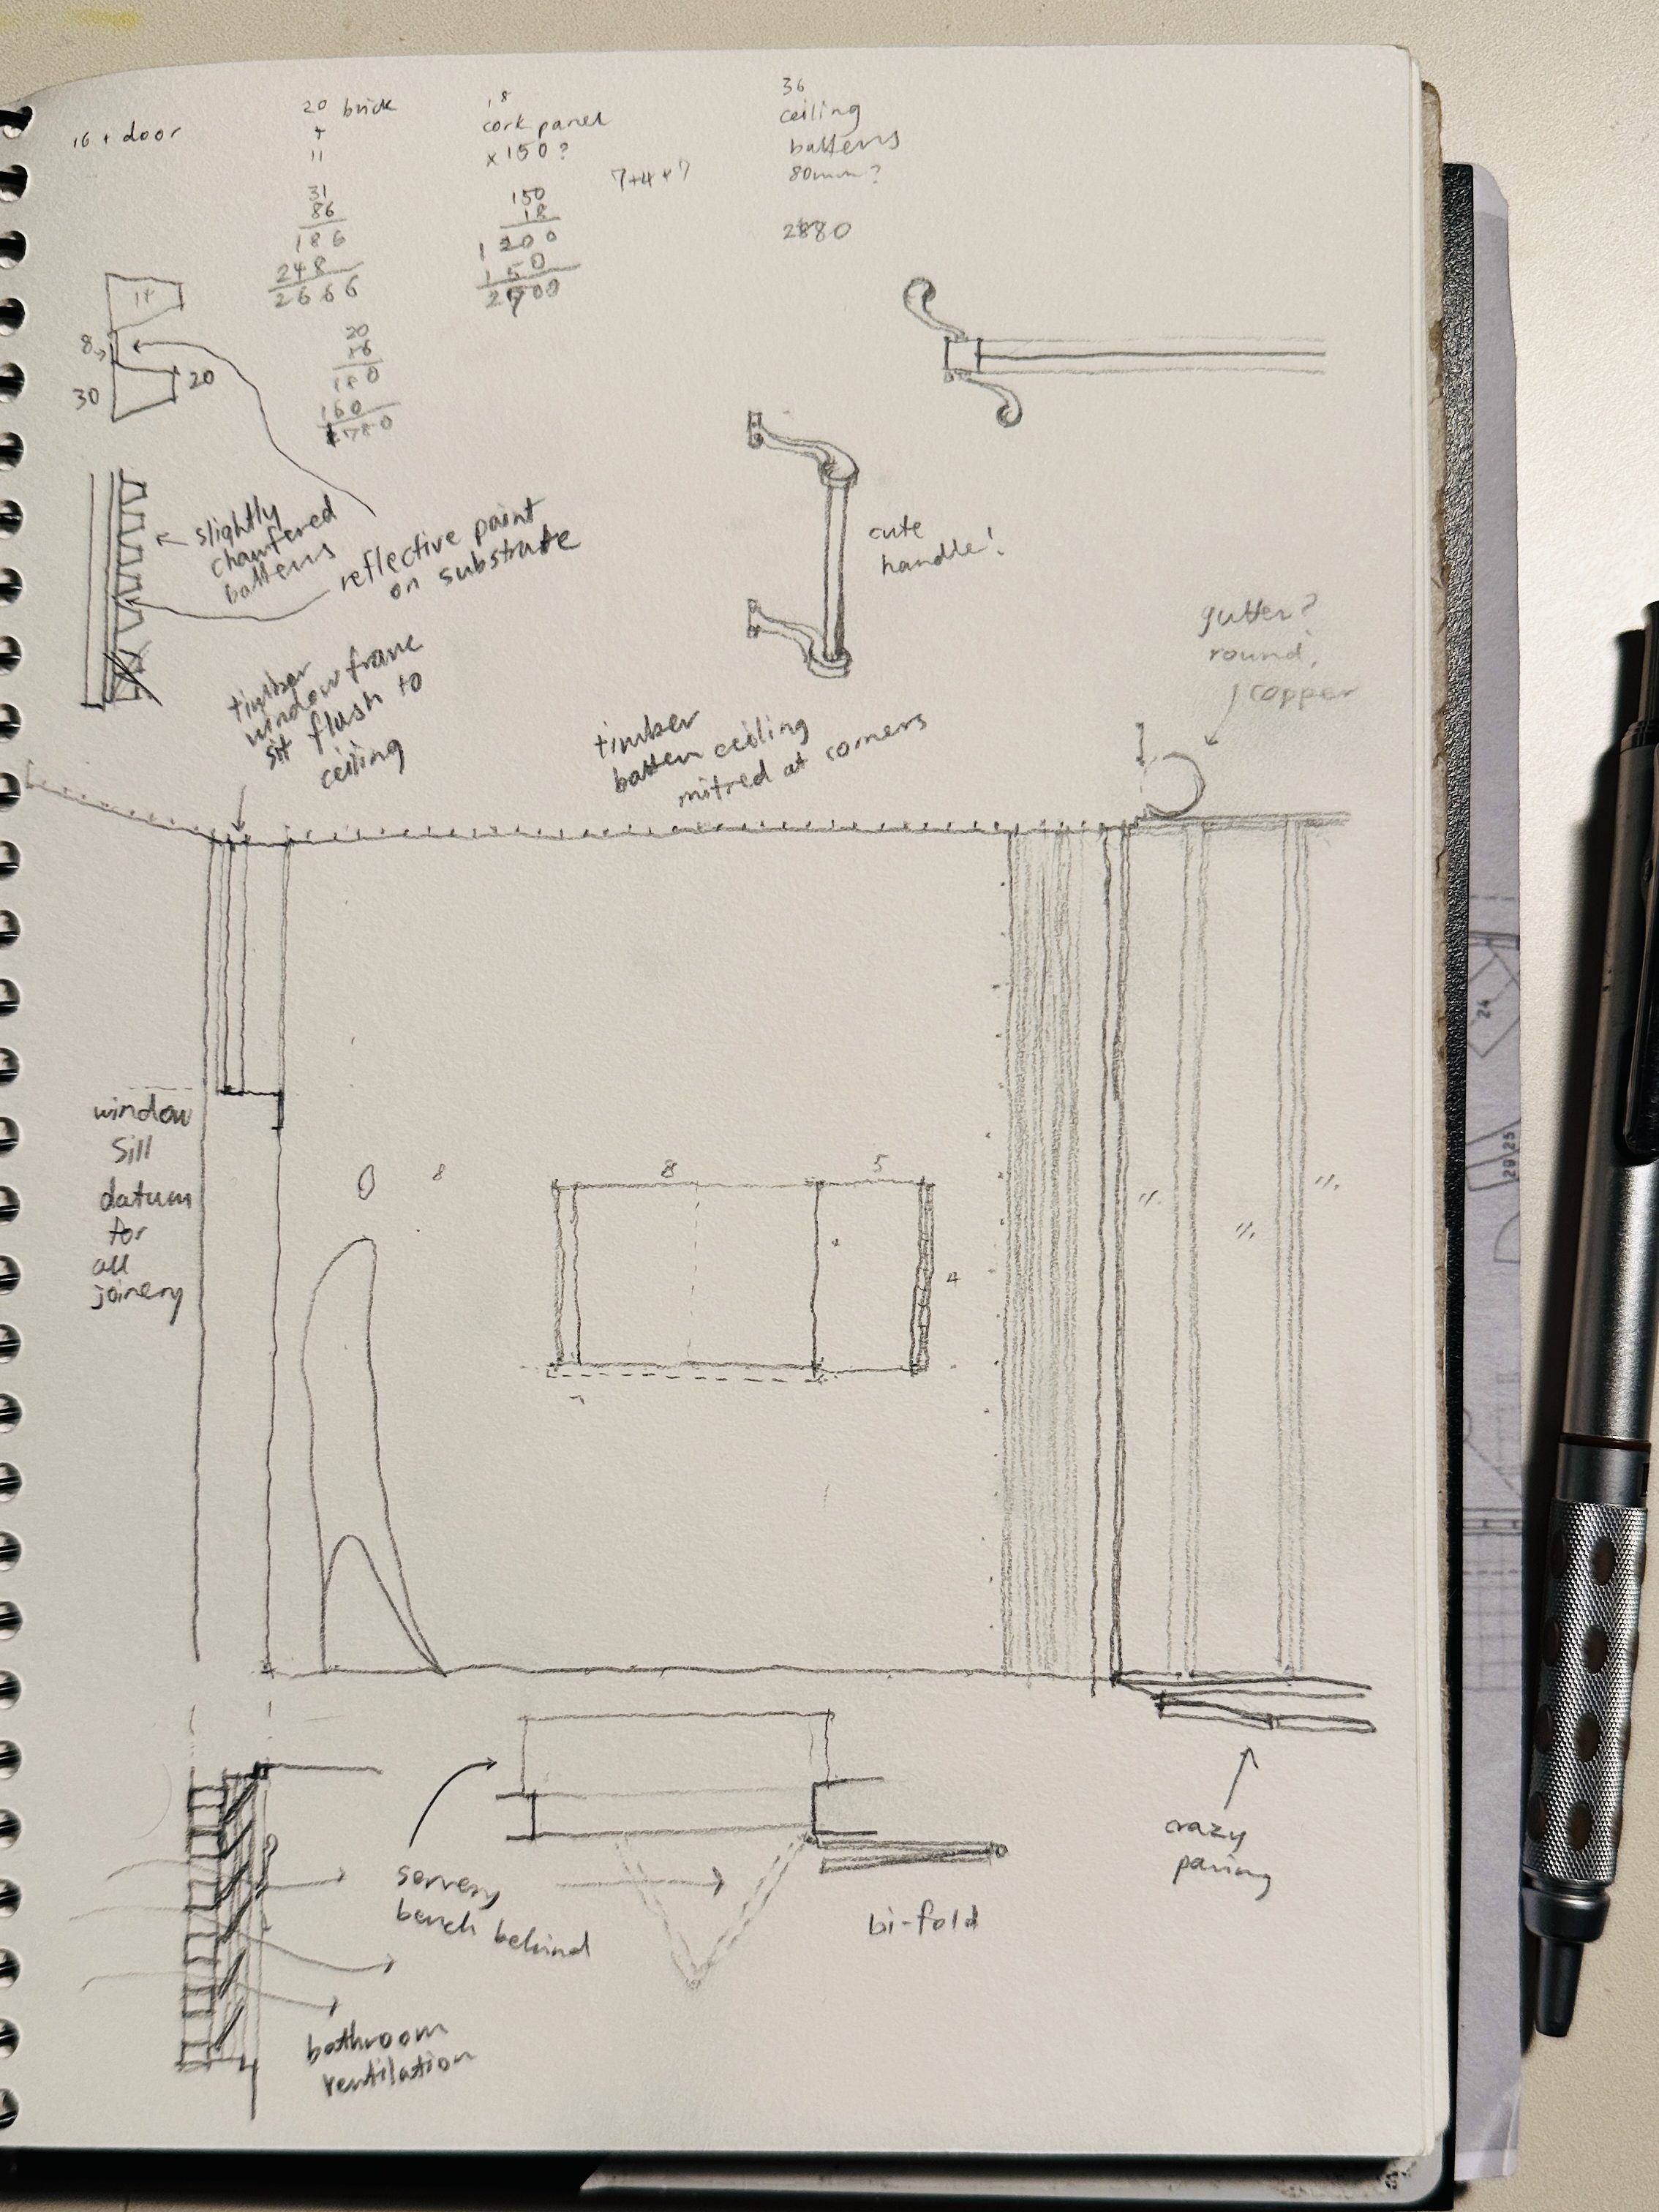 16 + door
20 brick
+
11
31
86
186
248
2666
20
180
160
1780
18
cork panel
x 150?
150
18
1200
150
2700
7+4+7
36
ceiling
battens
80mm?
2880
8
30
20
slightly
chamfered
battens
reflective paint
on substrate
cute
handle!
gutter?
round,
copper
timber
window frame
sit flush to
ceiling
timber
batten ceiling
mitred at corners
window
sill
datum
for
all
joinery
8
8
5
4
servery
bench behind
bi-fold
crazy
paving
bathroom
ventilation
24
29
25